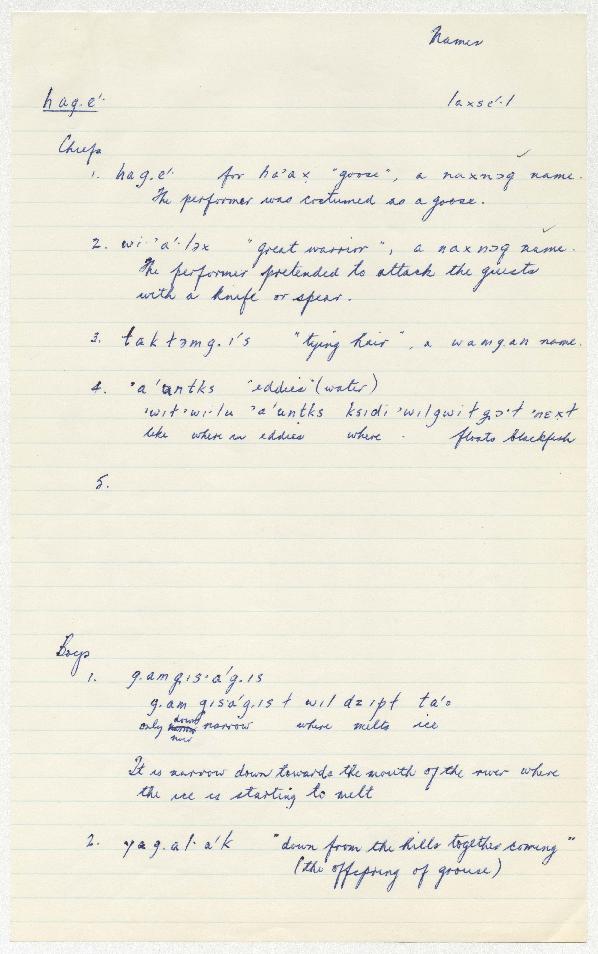 Names
hag.e´· laxse´·l
Chiefs
1. hag.e´· for ha'ax̣ "goose", a naxnɔq name.
The performer was costumed as a goose.
2. wi·'a´·lɔx "great warrior", a naxnɔq name.
The performer pretended to attack the guests
with a knife or spear.
3. taktɔmg.i's "tying hair", a wamg.an name.
4. 'a´untks "eddies" (water)
'wit'wi·lu 'a´untks ksidi 'wilgwit 'nɛxt
like where in eddies where floats blackfish
5.
Boys
1. g.amg.is·a´g.is
g.am g.is·a´g.ist wil dzipt ta´o
only down narrow where melts ice
It is narrow down towards the mouth of the river where
the ice is starting to melt
2. yag.al·a´k "down from the hills together coming"
(the offspring of grouse)